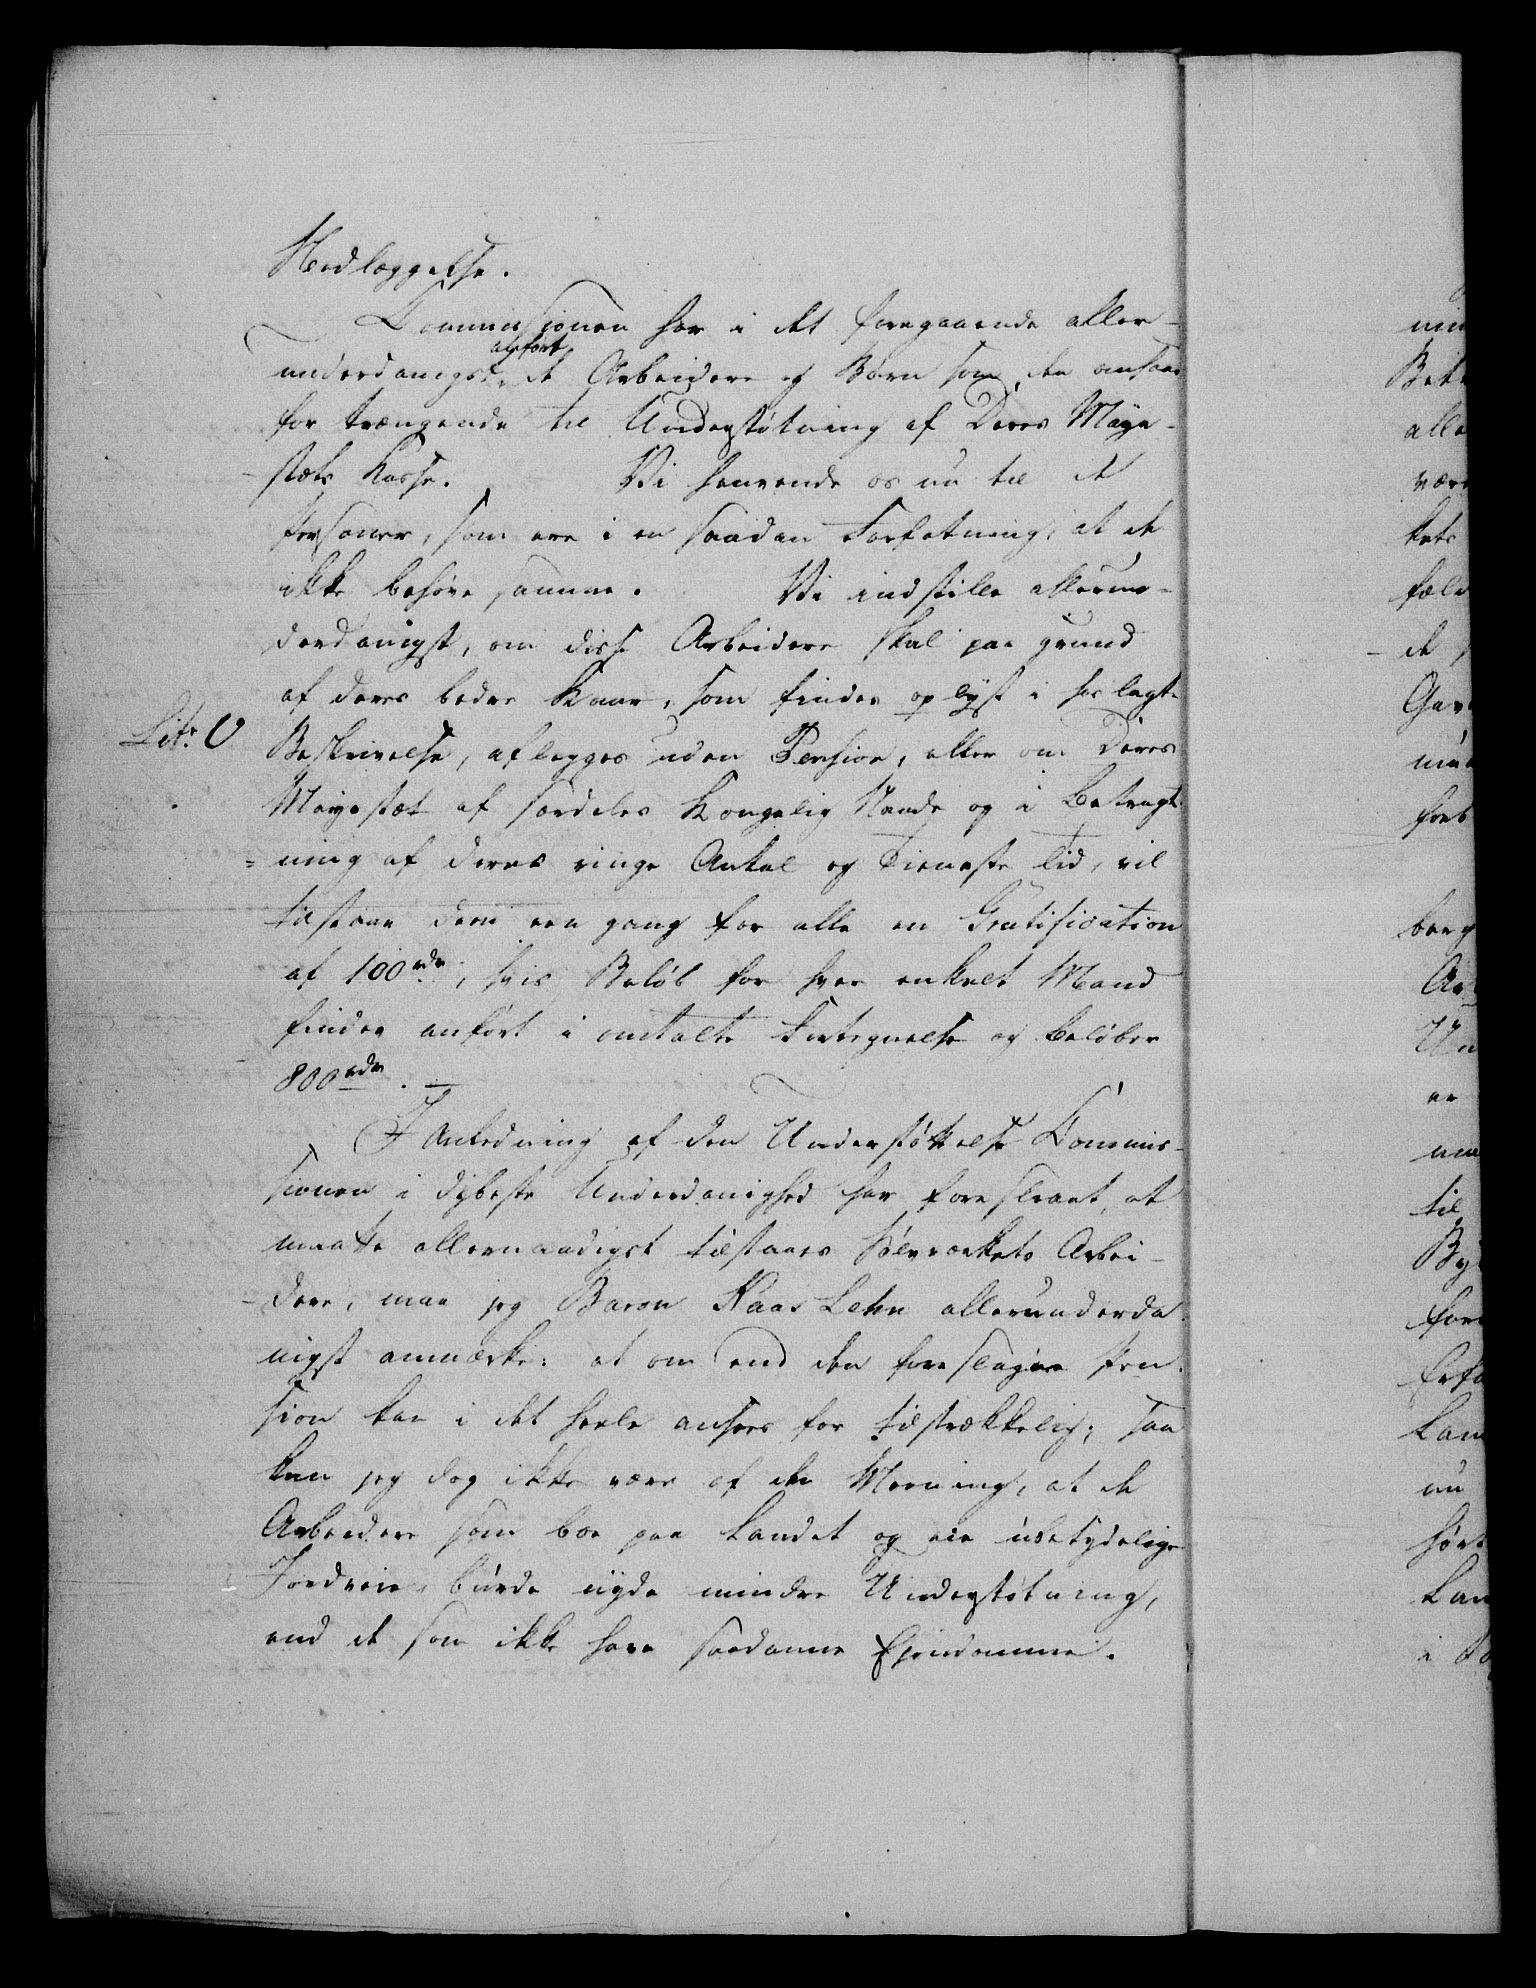 Nedlæggelse.
Commissionen har i det foregaaende aller-
underdanigst anført de Arbeidere og Børn som den ansaae
for trængende til Understøtning af Deres Maye-
stæts Kasse. Vi henvende os nu til de
Personer, som ere i en saadan Forfatning, at de
ikke behøve samme. Vi indstille allerun-
derdanigst, om disse Arbeidere skal paa grund
af deres bedre Kaar, som findes oplyst i her lagte
Lit. U
Beskrivelse, aflægges uden Pension, eller om Deres
Mayestæt af særdeles Kongelig Naade og i Betragt-
ning af deres ringe Antal og Tieneste tid, vil
tilstaae dem een gang for alle en Gratification
af 100 rdr, hvis Beløb for hver enkelt Mand
findes anført i omtalte Fortegnelse og beløber
800 rdr. —
I Anledning af den Understøttelse Commis-
sionen i dybeste Underdanighed har foreslaaet, at
maatte allernaadigst tilstaaes Sølvværkets Arbei-
dere, maa jeg Baron Kaas Lehn allerunderda-
nigst anmærke: at om end den foreslagne Pen-
sion kan i det heele ansees for tilstrækkelig; saa
kan jeg dog ikke være af den Meening, at de
Arbeidere som boe paa Landet og eie ubetydelige
Jordveie, burde nyde mindre Understøtning,
end de som ikke have saadanne Ejendomme.